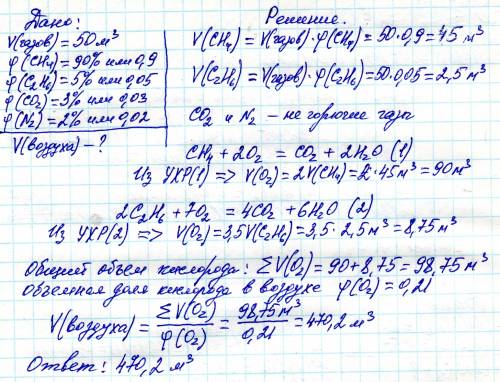 Дано:
V(газов) = 50 м³
φ(CH₄) = 90% или 0,9
φ(C₂H₆) = 5% или 0,05
φ(CO₂) = 3% или 0,03
φ(N₂) = 2% или 0,02
V(воздуха) - ?
Решение.
V(CH₄) = V(газов) · φ(CH₄) = 50 · 0,9 = 45 м³
V(C₂H₆) = V(газов) · φ(C₂H₆) = 50 · 0,05 = 2,5 м³
CO₂ и N₂ – не горючие газы
CH₄ + 2O₂ = CO₂ + 2H₂O (1)
Из УХР(1) => V(O₂) = 2V(CH₄) = 2 · 45 м³ = 90 м³
2C₂H₆ + 7O₂ = 4CO₂ + 6H₂O (2)
Из УХР(2) => V(O₂) = 3,5V(C₂H₆) = 3,5 · 2,5 м³ = 8,75 м³
Общий объем кислорода: ΣV(O₂) = 90 + 8,75 = 98,75 м³
Объемная доля кислорода в воздухе φ(O₂) = 0,21
V(воздуха) = ΣV(O₂) / φ(O₂) = 98,75 м³ / 0,21 = 470,2 м³
Ответ: 470,2 м³